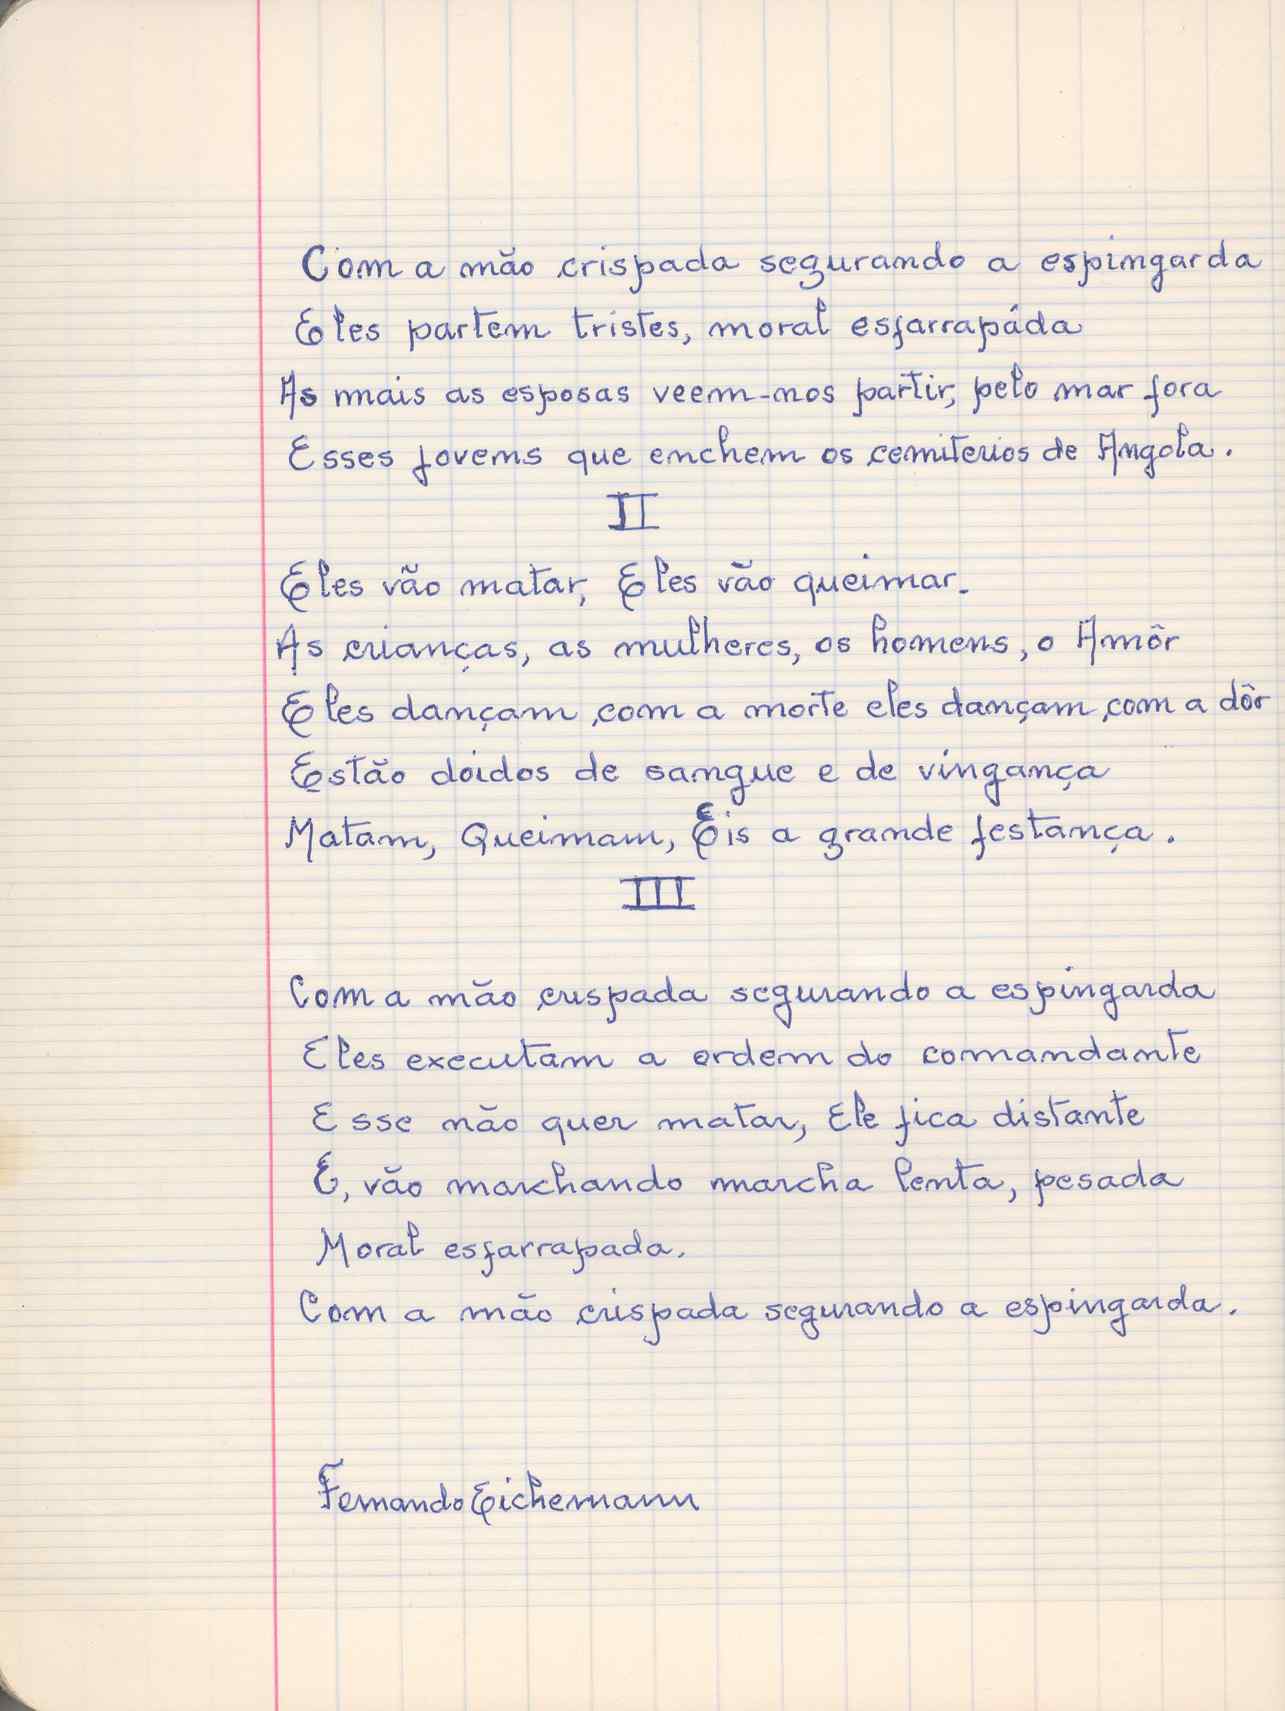 Com a mão crispada segurando a espingarda
Eles partem tristes, moral esfarrapáda
As mais as esposas veem-nos partir, pelo mar fora
Esses jovems que enchem os cemiterios de Angola.
II
Eles vão matar, Eles vão queimar.
As crianças, as mulheres, os homens, o Amôr
Eles dançam com a morte eles dançam com a dôr
Estão doidos de sangue e de vingança
Matam, Queimam, Eis a grande festança.
III
Com a mão crispada segurando a espingarda
Eles executam a ordem do comandante
Esse não quer matar, Ele fica distante
E, vão marchando marcha lenta, pesada
Moral esfarrapada.
Com a mão crispada segurando a espingarda.
Fernando Eichemann